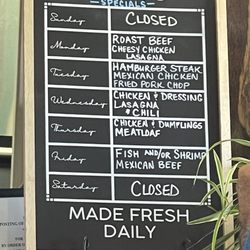 SPECIALS
Sunday CLOSED
Monday ROAST BEEF
CHEESY CHICKEN
LASAGNA
Tuesday HAMBURGER STEAK
MEXICAN CHICKEN
FRIED PORK CHOP
Wednesday CHICKEN & DRESSING
LASAGNA
& CHILI
Thursday CHICKEN & DUMPLINGS
MEATLOAF
Friday FISH AND/OR SHRIMP
MEXICAN BEEF
Saturday CLOSED
MADE FRESH
DAILY
POSTING OF
FOR
BY ORDER O